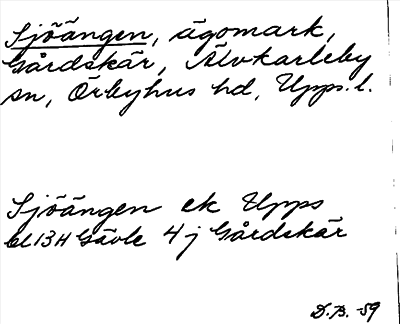 Sjöängen, ägomark,
Gårdskär, Älvkarleby
sn, Örbyhus hd, Upps. l.
Sjöängen ek Upps
bl 13H Gävle 4 j Gårdskär
D.B. -59